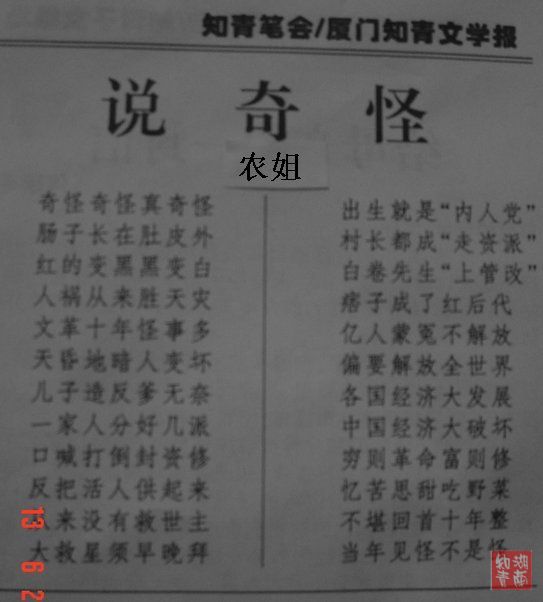 知青笔会/厦门知青文学报
说奇怪
农姐
奇怪奇怪真奇怪
肠子长在肚皮外
红的变黑黑变白
人祸从来胜天灾
文革十年怪事多
天昏地暗人变坏
儿子造反爹无奈
一家人分好几派
口喊打倒封资修
反把活人供起来
从来没有救世主
大救星须早晚拜
出生就是“内人党”
村长都成“走资派”
白卷先生“上管改”
痞子成了红后代
亿人蒙冤不解放
偏要解放全世界
各国经济大发展
中国经济大破坏
穷则革命富则修
忆苦思甜吃野菜
不堪回首十年整
当年见怪不是怪
13 6 2
湖南知青